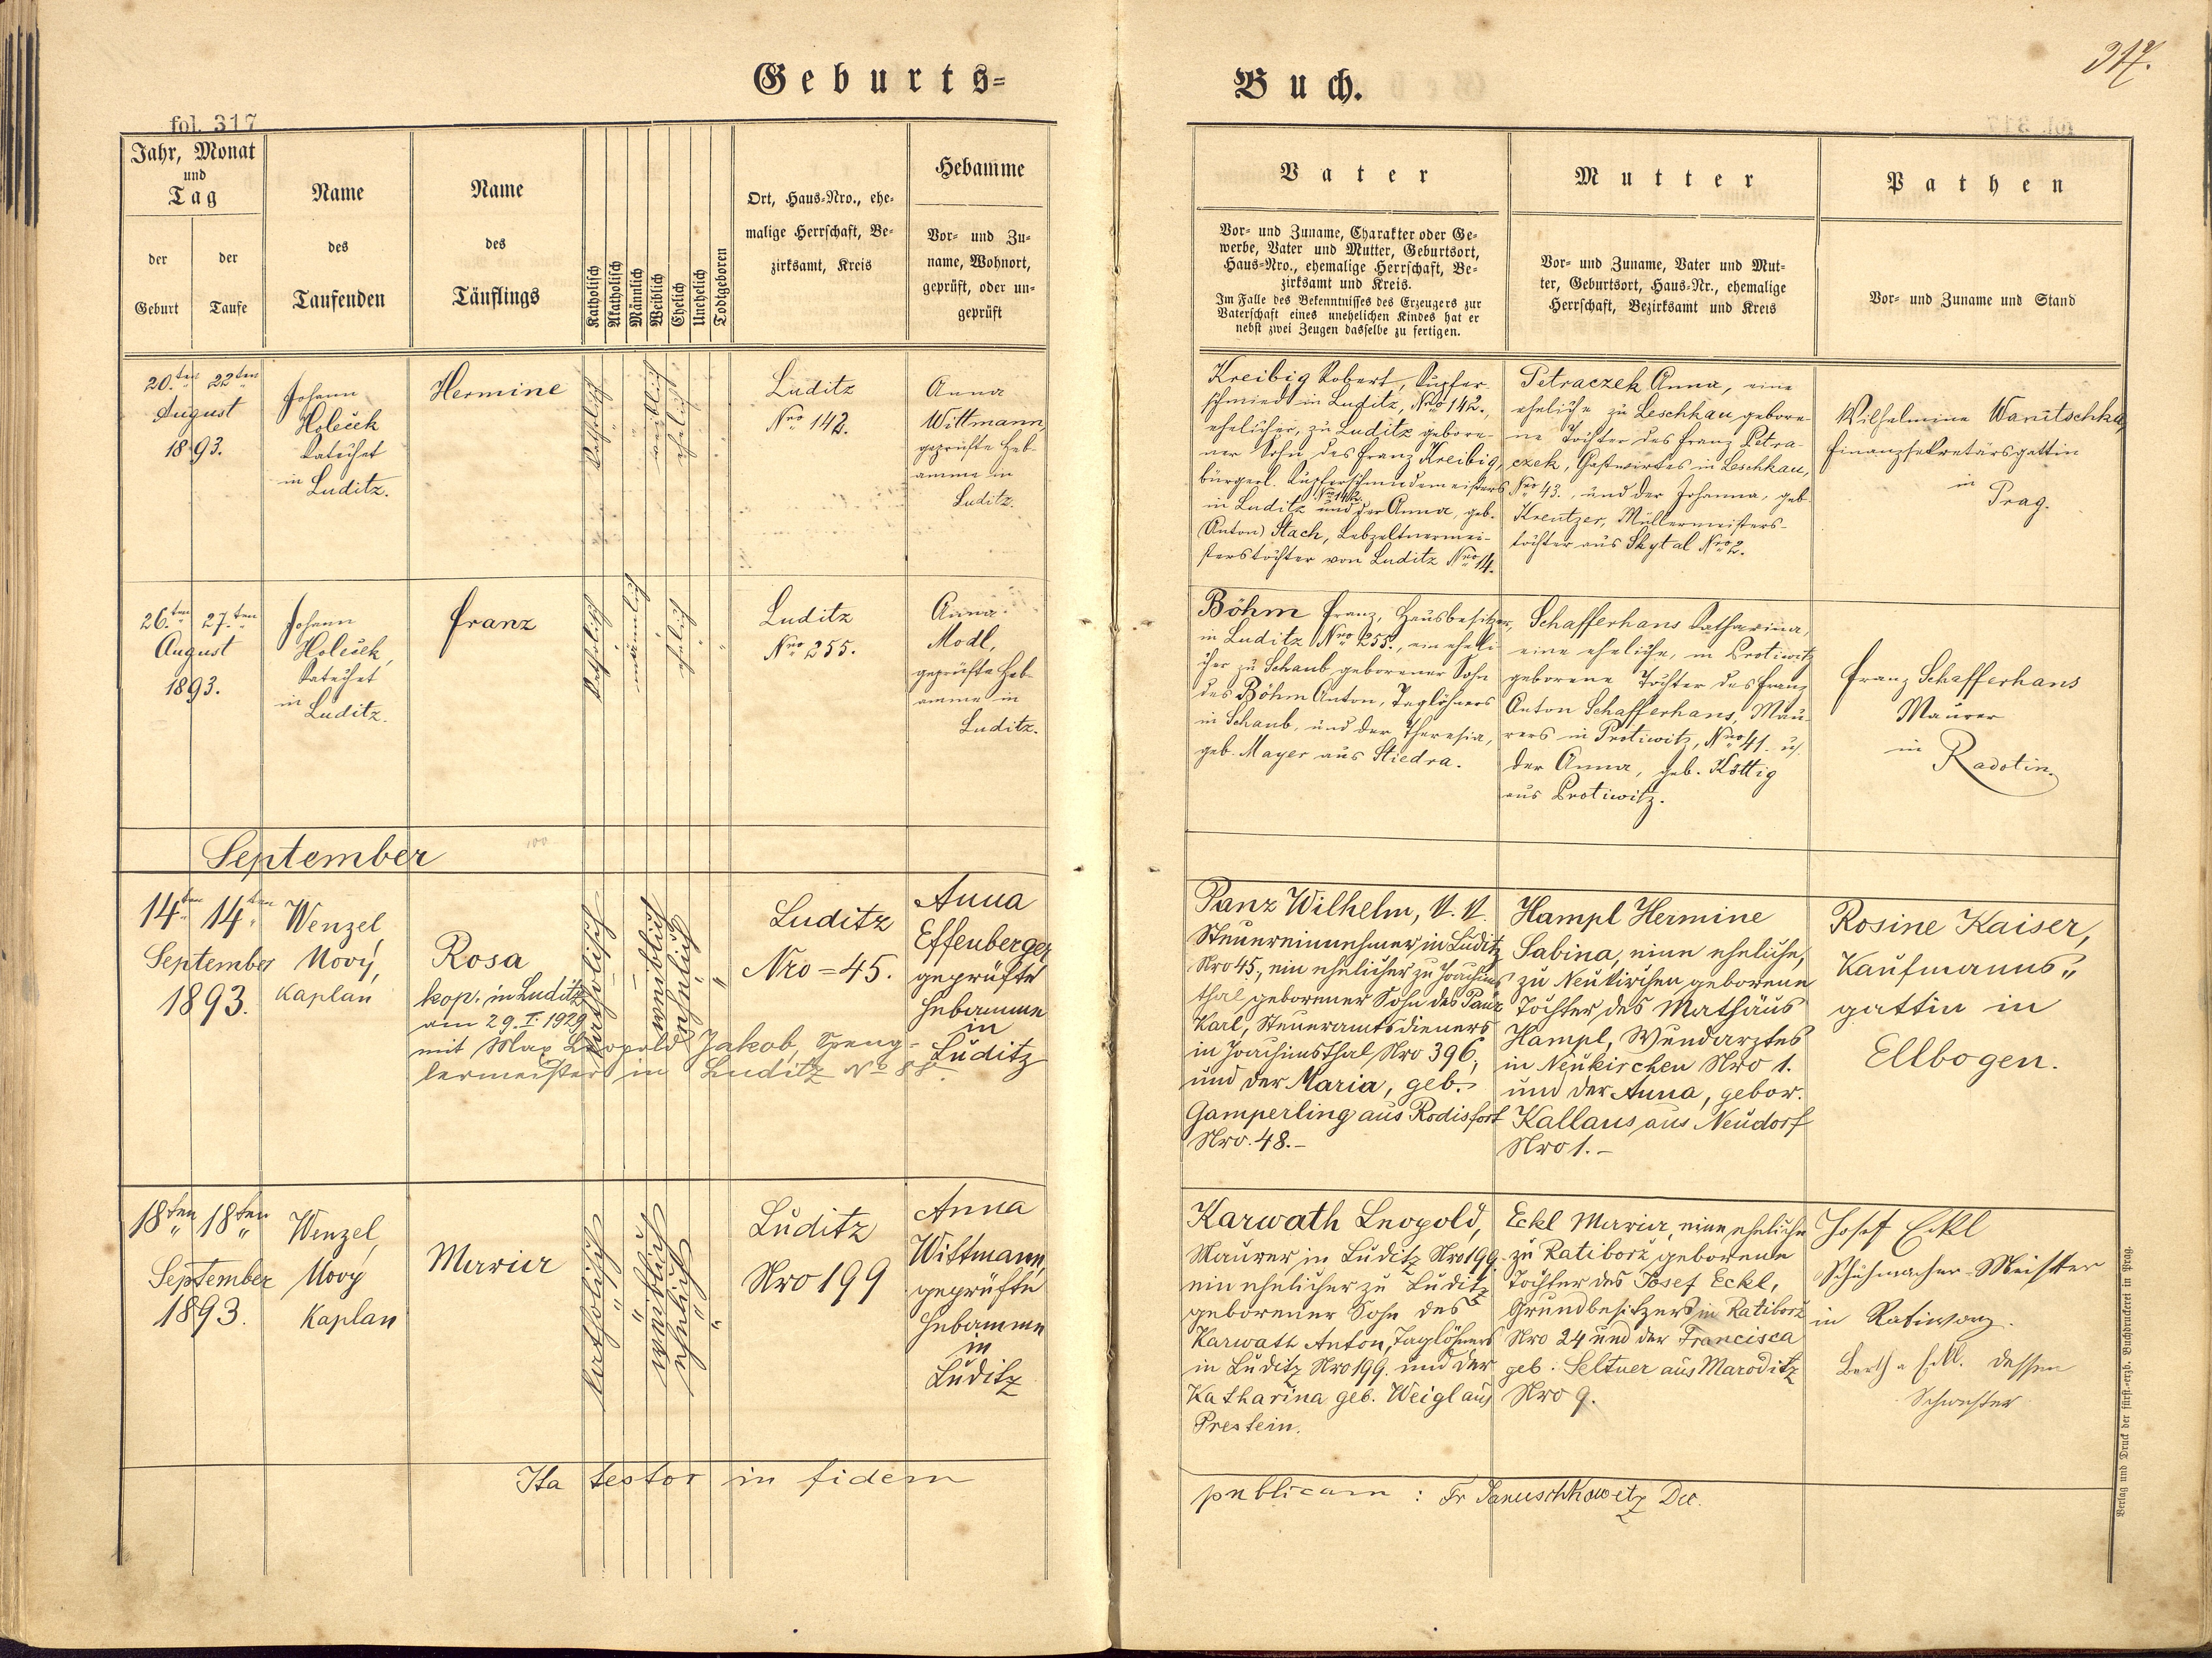 Geburts=
Buch.
317.
fol. 317
Jahr, Monat
und
Tag
der
Geburt
der
Taufe
Name
des
Taufenden
Name
des
Täuflings
Katholisch
Akatholisch
Männlich
Weiblich
Ehelich
Unehelich
Todtgeboren
Ort, Haus=Nro., ehe=
malige Herrschaft, Be=
zirksamt, Kreis
Hebamme
Vor= und Zu=
name, Wohnort,
geprüft, oder un=
geprüft
Vater
Vor= und Zuname, Charakter oder Ge=
werbe, Vater und Mutter, Geburtsort,
Haus=Nro., ehemalige Herrschaft, Be=
zirksamt und Kreis.
Im Falle des Bekenntnisses des Erzeugers zur
Vaterschaft eines unehelichen Kindes hat er
nebst zwei Zeugen dasselbe zu fertigen.
Mutter
Vor= und Zuname, Vater und Mut=
ter, Geburtsort, Haus=Nr., ehemalige
Herrschaft, Bezirksamt und Kreis
Pathen
Vor= und Zuname und Stand
20.ten 22ten
August
1893.
Johann
Holeček
Katechet
in
Luditz.
Hermine
katholisch
weiblich
ehelich
Luditz
Nro 142.
Anna
Wittmann,
geprüfte Heb-
amme in
Luditz.
Kreibig Robert, Kupfer-
schmied in Luditz, Nro 142.,
ehelicher, zu Luditz gebore-
ner Sohn des Franz Kreibig,
bürgerl. Kupferschmiedemeisters
in Luditz Nro 142. und der Anna, geb.
(Anton) Stach, Lebzeltnermei-
sterstochter von Luditz Nro 14.
Petraczek Anna, eine
eheliche zu Leschkau gebore-
ne Tochter des Franz Petra-
czek, Gastwirtes in Leschkau,
Nro 43., und der Johanna, geb.
Kreutzer, Müllermeisters-
tochter aus Skytal Nro 2.
Wilhelmine Wanitschka,
Finanzsekretärsgattin
in
Prag.
26.ten 27.ten
August
1893.
Johann
Holeček,
Katechet
in
Luditz.
Franz
katholisch
männlich
ehelich
Luditz
Nro 255.
Anna
Modl,
geprüfte Heb-
amme in
Luditz.
Böhm Franz, Hausbesitzer,
in Luditz Nro 255., ein eheli-
cher zu Schaub geborener Sohn
des Böhm Anton, Taglöhners
in Schaub, und der Theresia,
geb. Mayer aus Stiedra.
Schafferhans Katharina,
eine eheliche, in Protiwitz
geborene Tochter des Franz
Anton Schafferhans, Mau-
rers in Protiwitz, Nro 41. u.
der Anna, geb. Köttig
aus Protiwitz.
Franz Schafferhans
Maurer
in
Radotin.
September
14ten 14ten
September
1893.
Wenzel
Nový,
Kaplan
Rosa
kop. in Luditz
am 29. I. 1929
mit Max Leopold Jakob, Speng-
lermeister in Luditz No 88.
katholisch
weiblich
ehelich
Luditz
Nro = 45.
Anna
Effenberger
geprüfte
Hebamme
in
Luditz
Panz Wilhelm, k. k.
Steuereinnehmer in Luditz
Nro 45., ein ehelicher zu Joachims
thal geborener Sohn des Panz
Karl, Steueramtsdieners
in Joachimsthal Nro 396,
und der Maria, geb.
Gamperling aus Rodisfort
Nro. 48.-
Hampl Hermine
Sabina, eine eheliche,
zu Neukirchen geborene
Tochter des Mathäus
Hampl, Wundarztes
in Neukirchen Nro 1.
und der Anna, gebor.
Kallaus aus Neudorf
Nro 1.-
Rosine Kaiser,
Kaufmanns„
gattin in
Ellbogen.
18ten 18ten
September
1893.
Wenzel
Nový
Kaplan
Maria
katholisch
weiblich
ehelich
Luditz
Nro 199
Anna
Wittmann,
geprüfte
Hebamme
in
Luditz
Karwath Leopold,
Maurer in Luditz Nro 199.
ein ehelicher zu Luditz
geborener Sohn des
Karwath Anton, Taglöhners
in Luditz Nro 199. und der
Katharina geb. Weigl aus
Prestein.
Eckl Maria, eine eheliche
zu Ratiborž geborene
Tochter des Josef Eckl,
Grundbesitzers in Ratiborž
Nro 24 und der Francisca
geb. Seltner aus Maroditz
Nro 9.
Josef Eckl
Schuhmacher-Meister
in
Bertha Eckl. dessen
Schwester
Ita testor in fidem
publicam : Fr Januschkowetz Dec.
Verlag und Druck der fürst.=erzb. Buchdruckerei in Prag.